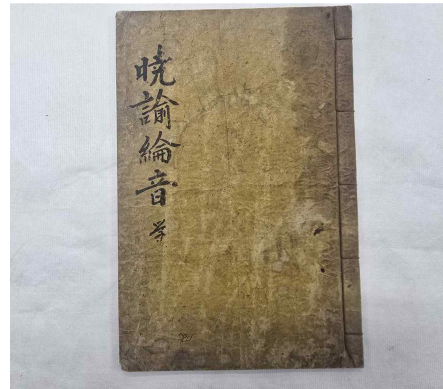 曉諭綸音